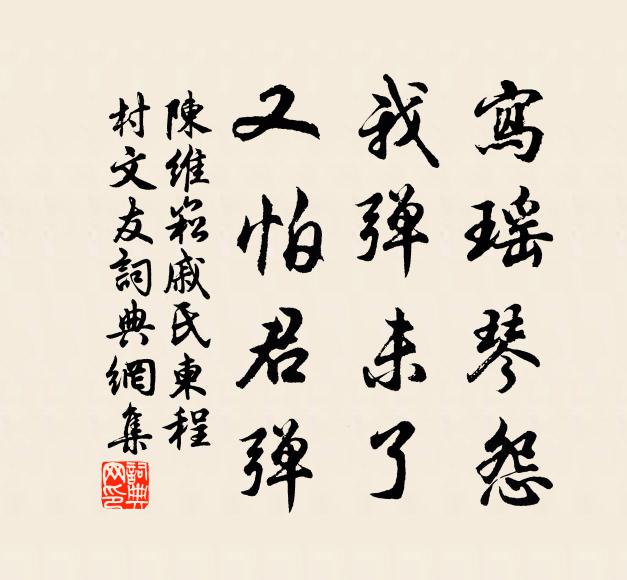 寫瑶琴怨
我弹未了
又怕君弹
陳維崧戚氏東程
村文友詞典網集
詞典网印